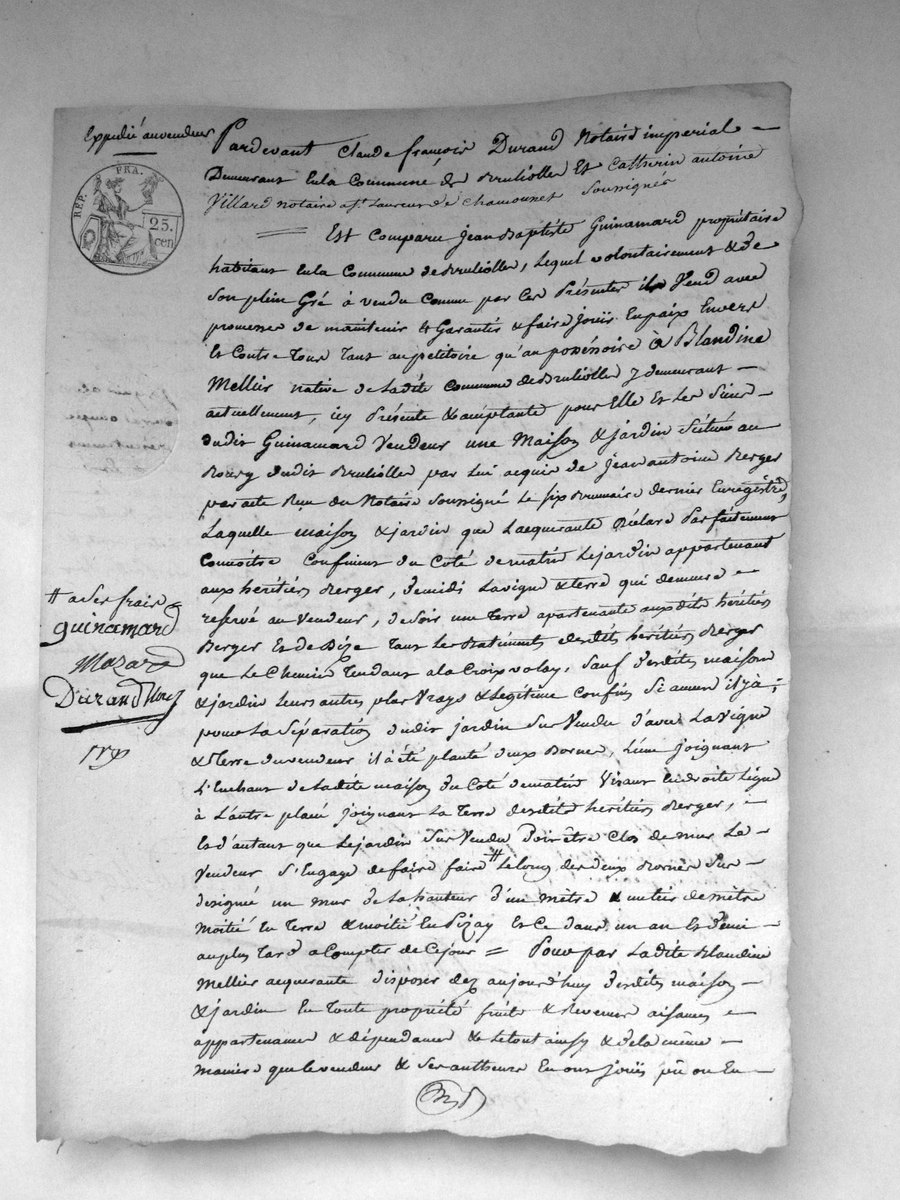 Expedié au vendeur
REP. FRA.
25.
cen
Pardevant Claude françois Durand Notaire imperial
Demeurant En la Commune de Brulliolles Et Catherin antoine
Villard notaire a St Laurent de Chamousset Soussignés
Est Comparu Jean Baptiste Guinamard propriétaire
habitant En la Commune de Brulliolles, Lequel volontairement & de
Son plein Gré à vendu Comme par Ces Présentes il Vend avec
promesse de maintenir & Garantir & faire Jouir En paix Envers
Et Contre Tous Tant au petitoire qu'au possessoire à Blandine
Mellier native de Ladite Commune de Brulliolles y demeurant
actuellement, icy Présente & acceptante pour Elle Et Les Siens
dudit Guinamard Vendeur une Maison & jardin Scitués au
Bourg dudit Brulliolles par Lui acquis de Jean antoine Berger
par acte Reçu du Notaire Soussigné Le six Brumaire dernier Enregistré,
Laquelle maison & jardin que Lacquerante Déclare Parfaitement
Connoitre Confinent du Coté de matin Le jardin appartenant
aux heritiers Berger, de midi La vigne & terre qui demeure
reservé au Vendeur, de Soir une Terre apartenante auxdits héritiers
Berger Et de Bize Tant Les Batiments desdits héritiers Berger
que Le Chemin Tendant a la Croix volay, Sauf desdites maison
& jardin Leurs autres plus Vrays & Legitime Confins Si aucun il y à;
pour La Séparation dudit jardin Sus Vendu d'avec La Vigne
& Terre du vendeur il à été planté deux Bornes, L'une joignant
L'Enchant de Ladite maison du Coté de matin Visant En droite Ligne
à L'autre placé joignant La Terre desdits héritiers Berger,
Et d'autant que Le jardin Sus Vendu Doit être Clos de mur Le
Vendeur S'Engage de faire faire # Le Long des deux Bornes Sus
designé un mur de La hauteur d'un mètre & un tiers de mètre
moitié En Terre & moitié En Pizay Et Ce dans un an Et demi
au plus Tard a Compter de Ce jour = Pour par Ladite Blandine
Mellier acquerante disposer dez aujourd'huy desdites maison
& jardin En Toute propriété fruits & Revenus aisances
appartenances & dépendances & Le tout ainsy & de la même
Manière que Le vendeur & Ses autheurs En ont joüis pû ou Eu
# a Ses frais
guinamard
Mazard
Durand Nore